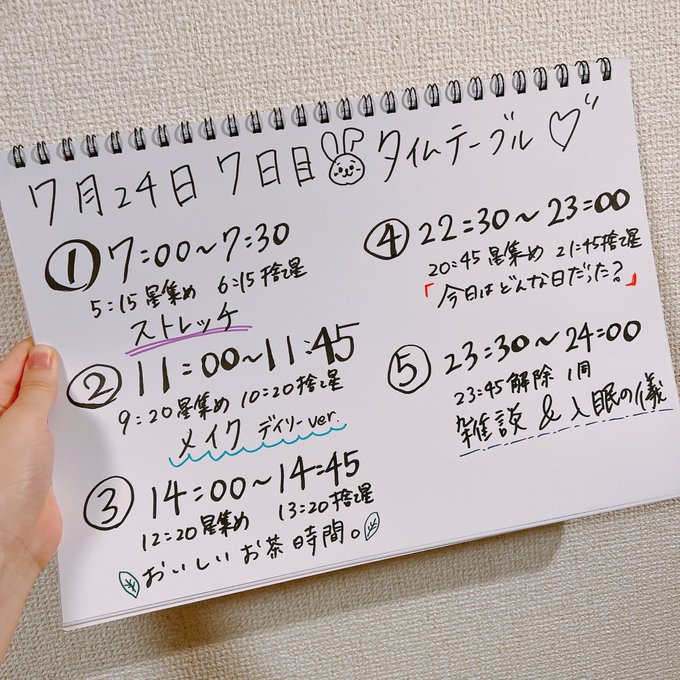 7月24日 7日目 タイムテーブル♡
① 7:00～7:30
5:15 星集め 6:15 捨て星
ストレッチ
② 11:00～11:45
9:20 星集め 10:20 捨て星
メイク デイリーver.
③ 14:00～14:45
12:20 星集め 13:20 捨て星
おいしいお茶時間。
④ 22:30～23:00
20:45 星集め 21:45 捨て星
「今日はどんな日だった？」
⑤ 23:30～24:00
23:45 解除 1周
雑談 & 入眠の儀